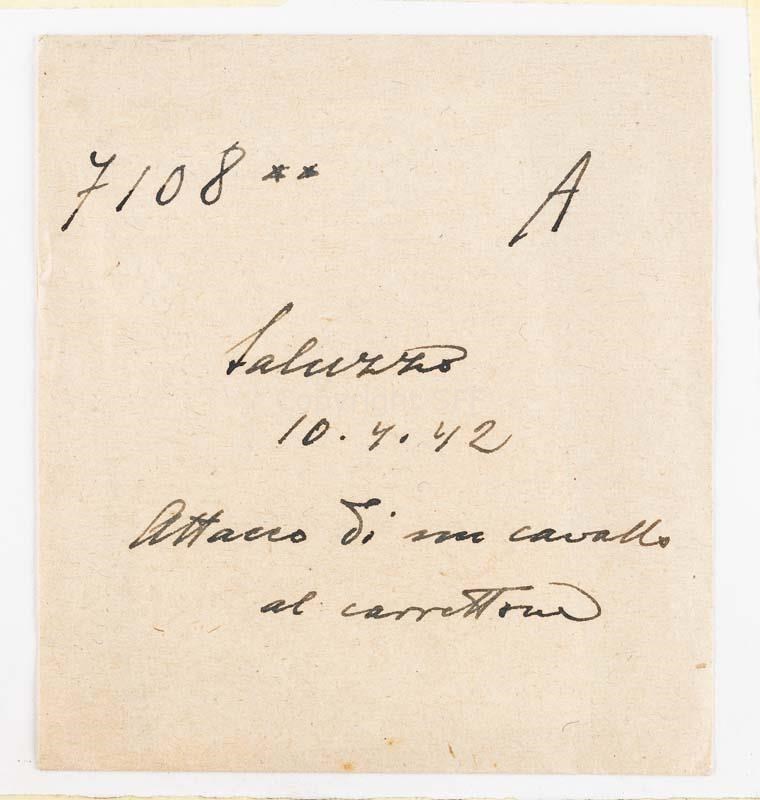 7108 ** A
Saluzzo
10.4.42
Attacco di un cavallo
al carrettone